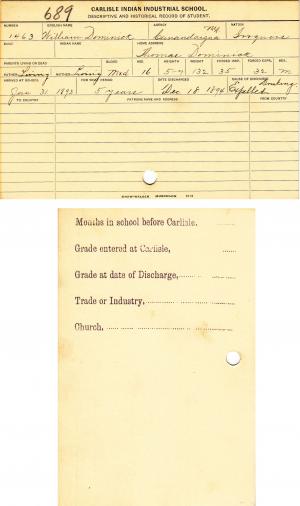 689
CARLISLE INDIAN INDUSTRIAL SCHOOL.
DESCRIPTIVE AND HISTORICAL RECORD OF STUDENT.
NUMBER ENGLISH NAME AGENCY NATION
1463 William Dominick Canandaigua NY Iroquois
BAND INDIAN NAME HOME ADDRESS
Thomas Dominick
PARENTS LIVING OR DEAD BLOOD AGE HEIGHT WEIGHT FORCED INSP. FORCED EXPR. SEX
FATHER Living MOTHER Living Med 16 5-7 132 35 32 M
ARRIVED AT SCHOOL FOR WHAT PERIOD DATE DISCHARGED CAUSE OF DISCHARGE
Jan 31 1893 5 years Dec 18 1894 Expelled
TO COUNTRY PATRONS NAME AND ADDRESS FROM COUNTRY
Months in school before Carlisle, ......
Grade entered at Carlisle, ......
Grade at date of Discharge, ......
Trade or Industry, ......
Church, ......